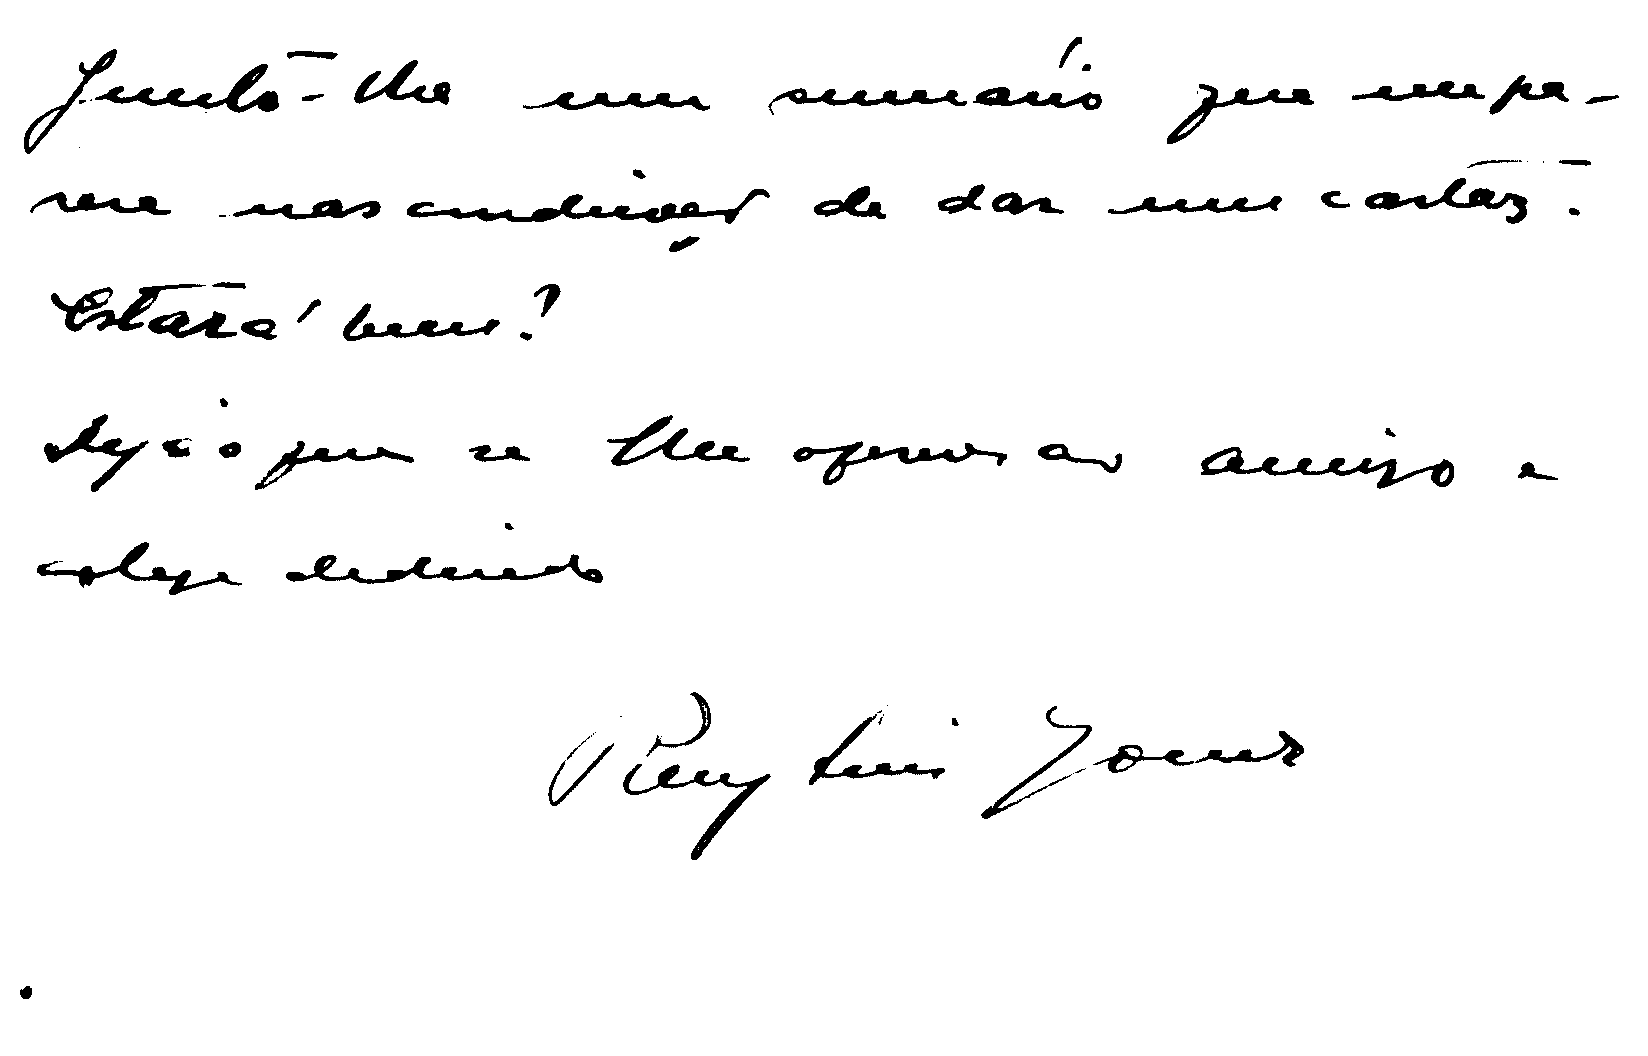 Junto-lhe um sumário que me pa-
rece nas condições de dar um cartaz.
Estará bem?
Veja o que se lhe oferece ao amigo e
colega dedicado
Ruy Luis Gomes